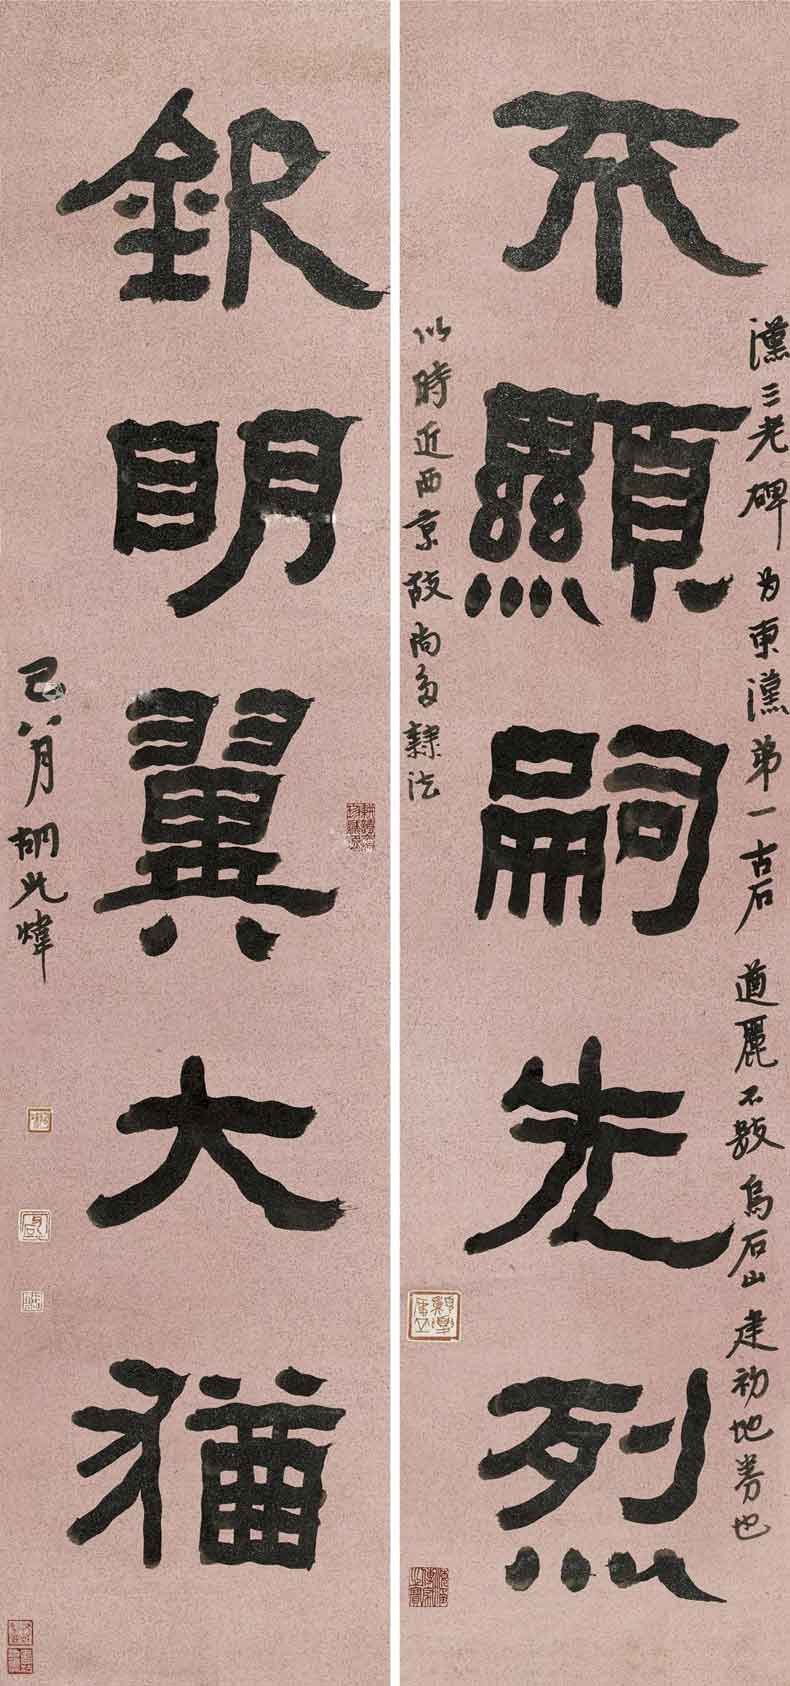 漢三老碑为東漢弟一古石遒麗不数烏石山建初地券也
不顯嗣先烈
以時近西京故尚多隸法
欽眀翼大猶
己八月胡光煒